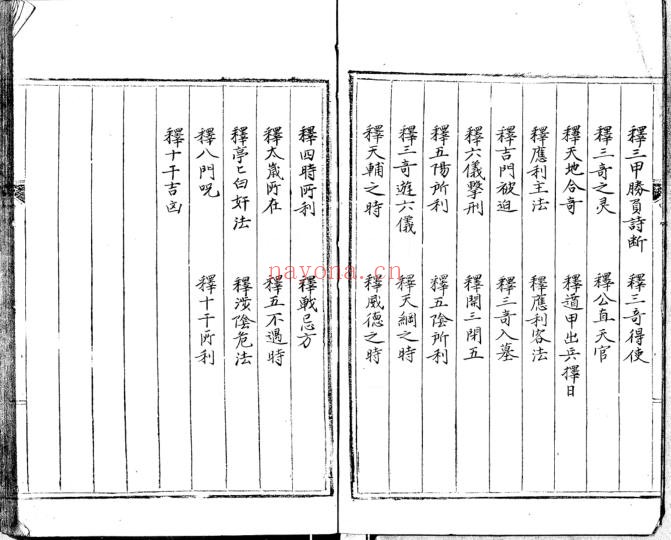 釋三甲勝負詩断　釋三奇得使
釋三奇之灵　釋公直天官
釋天地合奇　釋遁甲出兵擇日
釋應利主法　釋應利客法
釋吉門被迫　釋三奇入墓
釋六儀擊刑　釋開三閉五
釋五陽所利　釋五陰所利
釋三奇遊六儀　釋天網之時
釋天輔之時　釋威德之時
釋四時所利　釋戰忌方
釋太歲所在　釋五不遇時
釋亭亭白奸法　釋涉陰危法
釋八門呪　釋十干所利
釋十干吉凶
nayona.cn